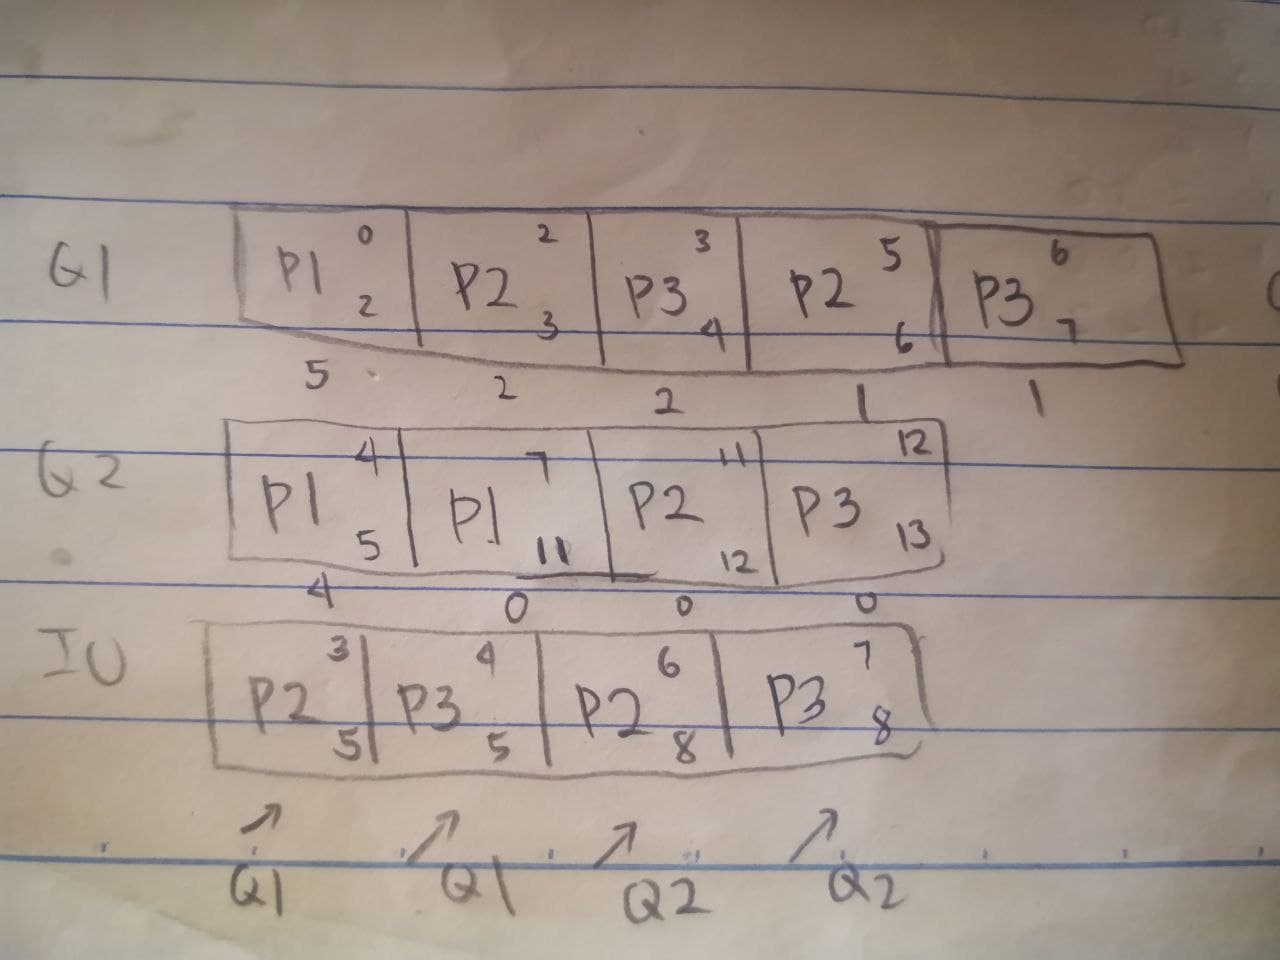 Q1 P1 0 2 P2 2 3 P3 3 4 P2 5 6 P3 6 7
5 2 2 1 1
Q2 P1 4 5 P1 7 11 P2 11 12 P3 12 13
4 0 0 0
IO P2 3 5 P3 4 5 P2 6 8 P3 7 8
Q1 Q1 Q2 Q2